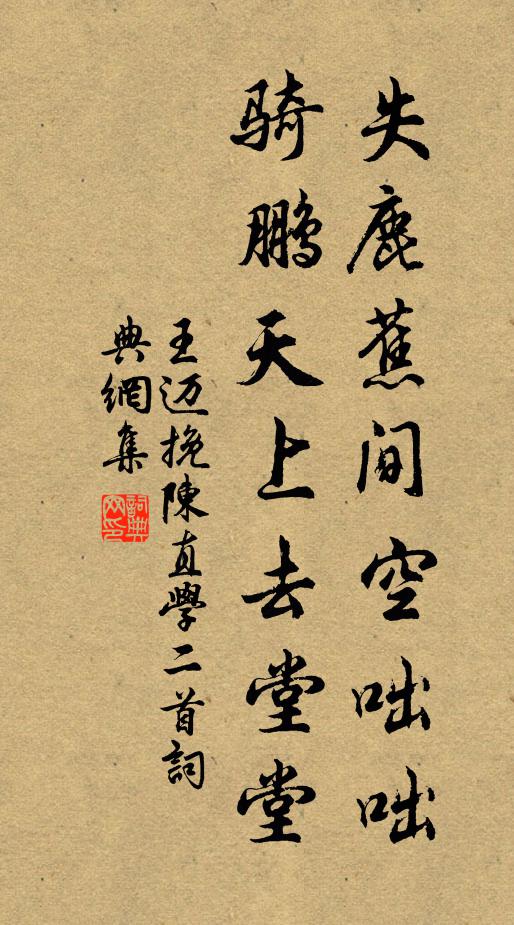 失鹿蕉间空咄咄
骑鹏天上去堂堂
王迈挽陳直學二首詞
典網集
詞典网印